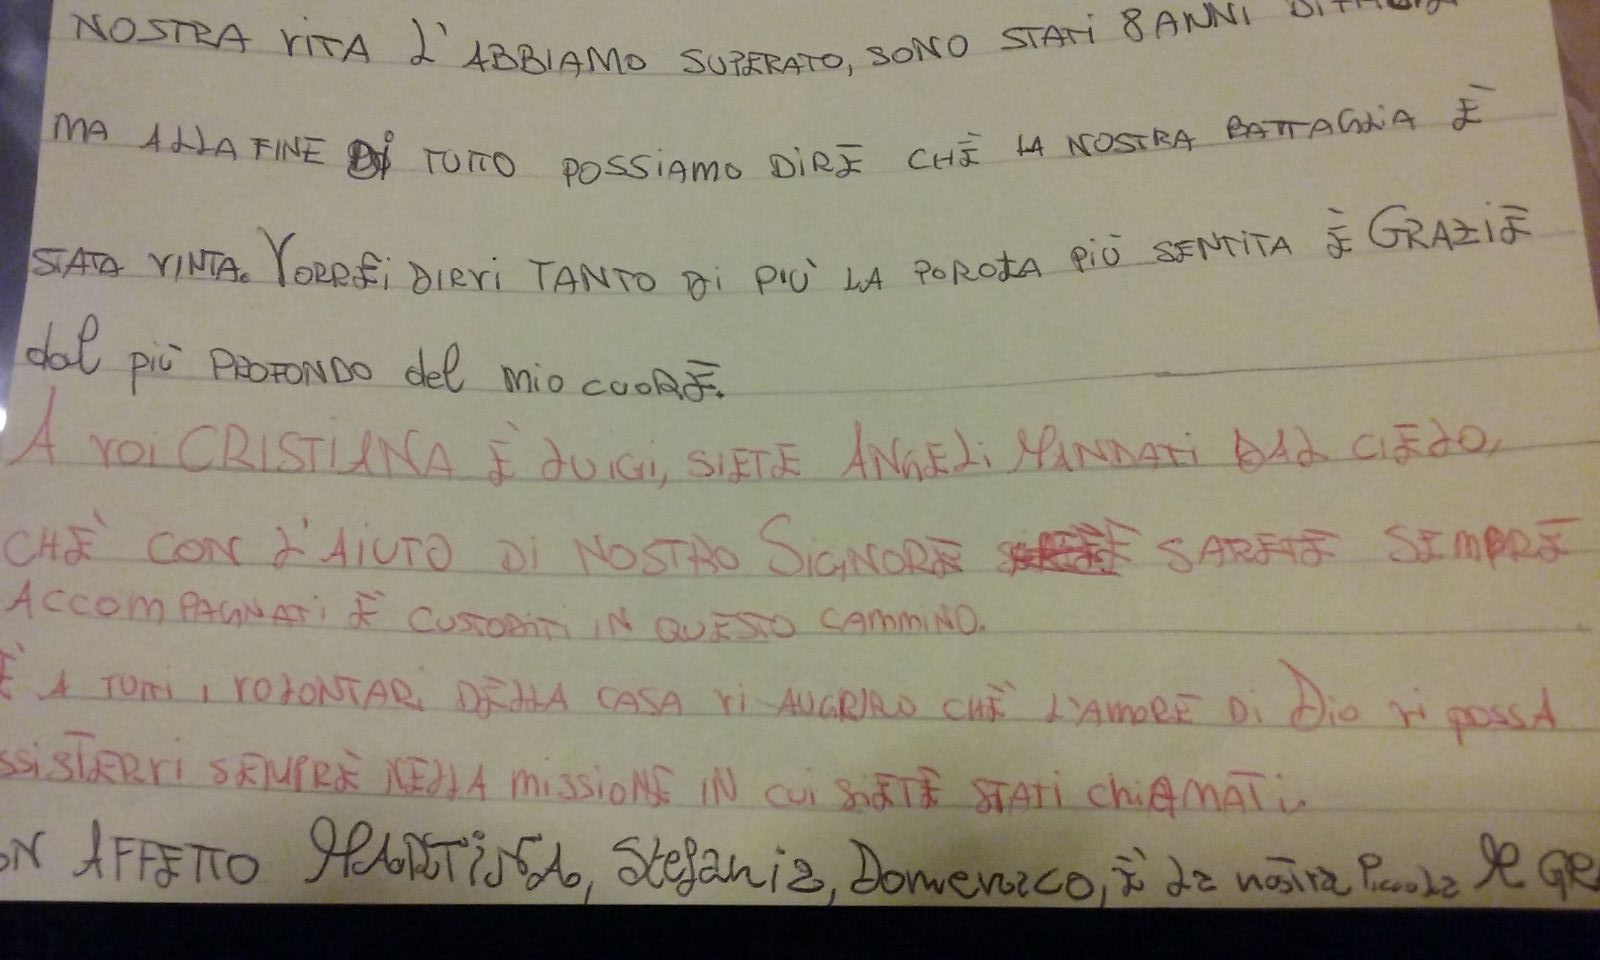 NOSTRA VITA L'ABBIAMO SUPERATO, SONO STATI 8 ANNI DI
MA ALLA FINE DI TUTTO POSSIAMO DIRE CHÈ LA NOSTRA BATTAGLIA È
STATA VINTA. VORREI DIRVI TANTO DI PIÙ LA POROLA PIÙ SENTITA È GRAZIE
dal più PROFONDO del mio CUORE.
A VOI CRISTIANA È LUIGI, SIETE ANGELI MANDATI DAL CIELO,
CHÈ CON L'AIUTO DI NOSTRO SIGNORE SARETE SEMPRE
ACCOMPAGNATI È CUSTODITI IN QUESTO CAMMINO.
È A TUTTI I VOLONTARI DELLA CASA VI AUGRIRO CHÈ L'AMORE DI DIO VI POSSA
SSISTERVI SEMPRE NELLA MISSIONE IN CUI SIETE STATI CHIAMATI.
ON AFFETTO MARTINA, Stefania, Domenico, È la nostra Piccola